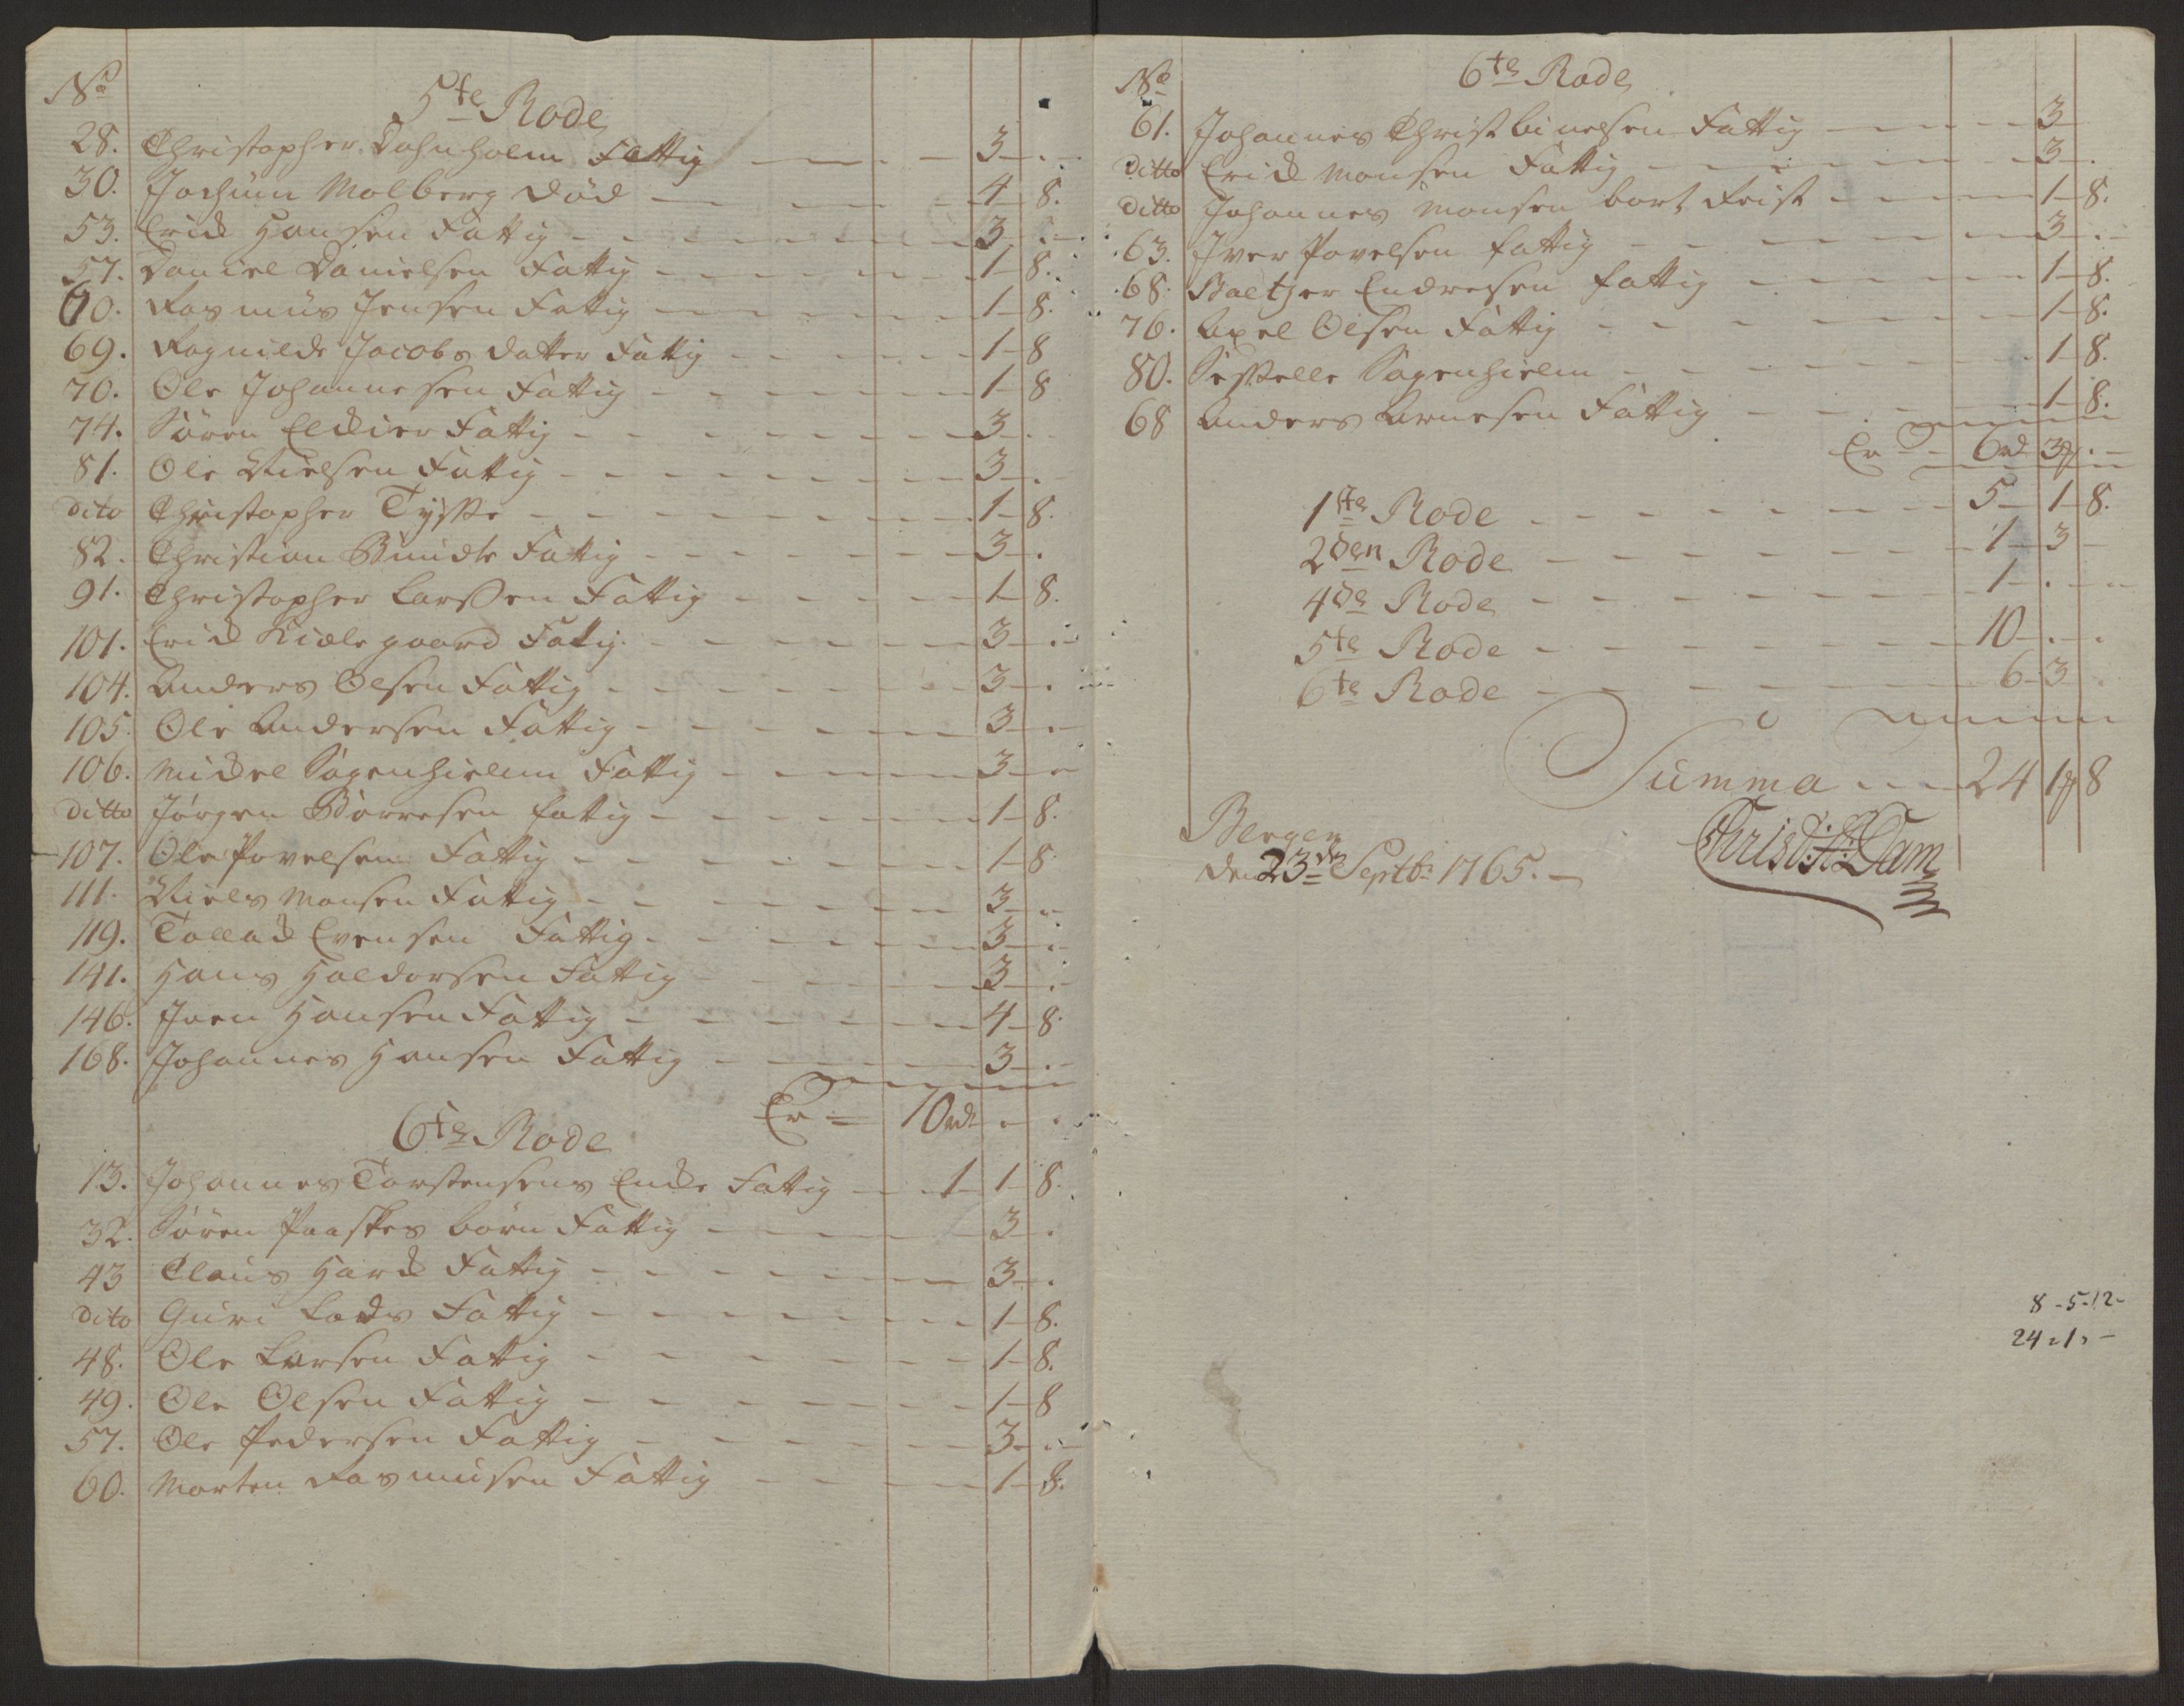 No
5te Rode
28. Christopher Dahnholm Fattig 3 .
30. Jochum Molberg död 4 8.
53. Erich Hansen Fattig 3 .
57. Daniel Danielsen Fattig 1 8.
60. Rasmus Jensen Fattig 1 8.
69. Ragnilde Jacobs datter Fattig 1 8
70. Ole Johannesen Fattig 1 8
74. Sören Fattig 3 .
81. Ole Nielsen Fattig 3 .
dito Christopher Tyste 1 8.
82. Christian Fattig 3 .
91. Christopher Larssen Fattig 1 8.
101. Erich Fattig. 3 .
104. Anders Olsen Fattig 3 .
105. Ole Andersen Fattig 3 .
106. Michel Sagenhielm Fattig 3
ditto Jörgen Börresen fattig 1 8.
107. Ole Povelsen Fattig 1 8
111. Niels Monsen Fattig 3
119. Tollack Evensen Fattig 3 .
141. Hans Haldorsen Fattig 3 .
146. Joen Hansen Fattig 4 8.
168. Johannes Hansen Fattig 3 .
Er = 10 rd . .
6te Rode
13. Johannes Torstensens Encke Fattig 1 1 8.
32. Sören Paaskes börn Fattig 3 .
43 Claus Fattig 3 .
dito Guri Fattig 1 8.
48. Ole Larsen Fattig 1 8.
49. Ole Olsen Fattig 1 8
57. Ole Pedersen Fattig 3 .
60. Morten Rasmusen Fattig 1 8.
No
6te Rode
61. Johannes Fattig 3
ditto Erich Monsen Fattig 3 .
ditto Johannes Monsen bort Reist 1 8.
63. Iver Povelsen fattig 3 .
68. Baltzer Endresen fattig 1 8.
76. Axel Olsen Fattig 1 8.
80. Sagenhielm 1 8.
68 Anders Arnesen Fattig 1 8.
Er 6 rd 3 .
1ste Rode 5 1 8.
2den Rode 1 3
4de Rode 1 .
5te Rode 10 . .
6te Rode 6 3 .
Summa 24 1 8
Bergen
den 23de Septbr 1765. Dam
8-5-12-
24-1-